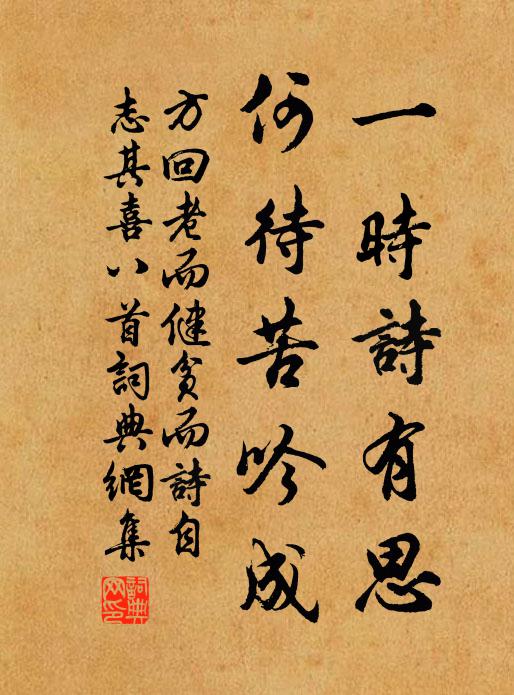 一時詩有思
何待苦吟成
方回老而健貧而詩自
志其喜八首詞典網集
詞典網印